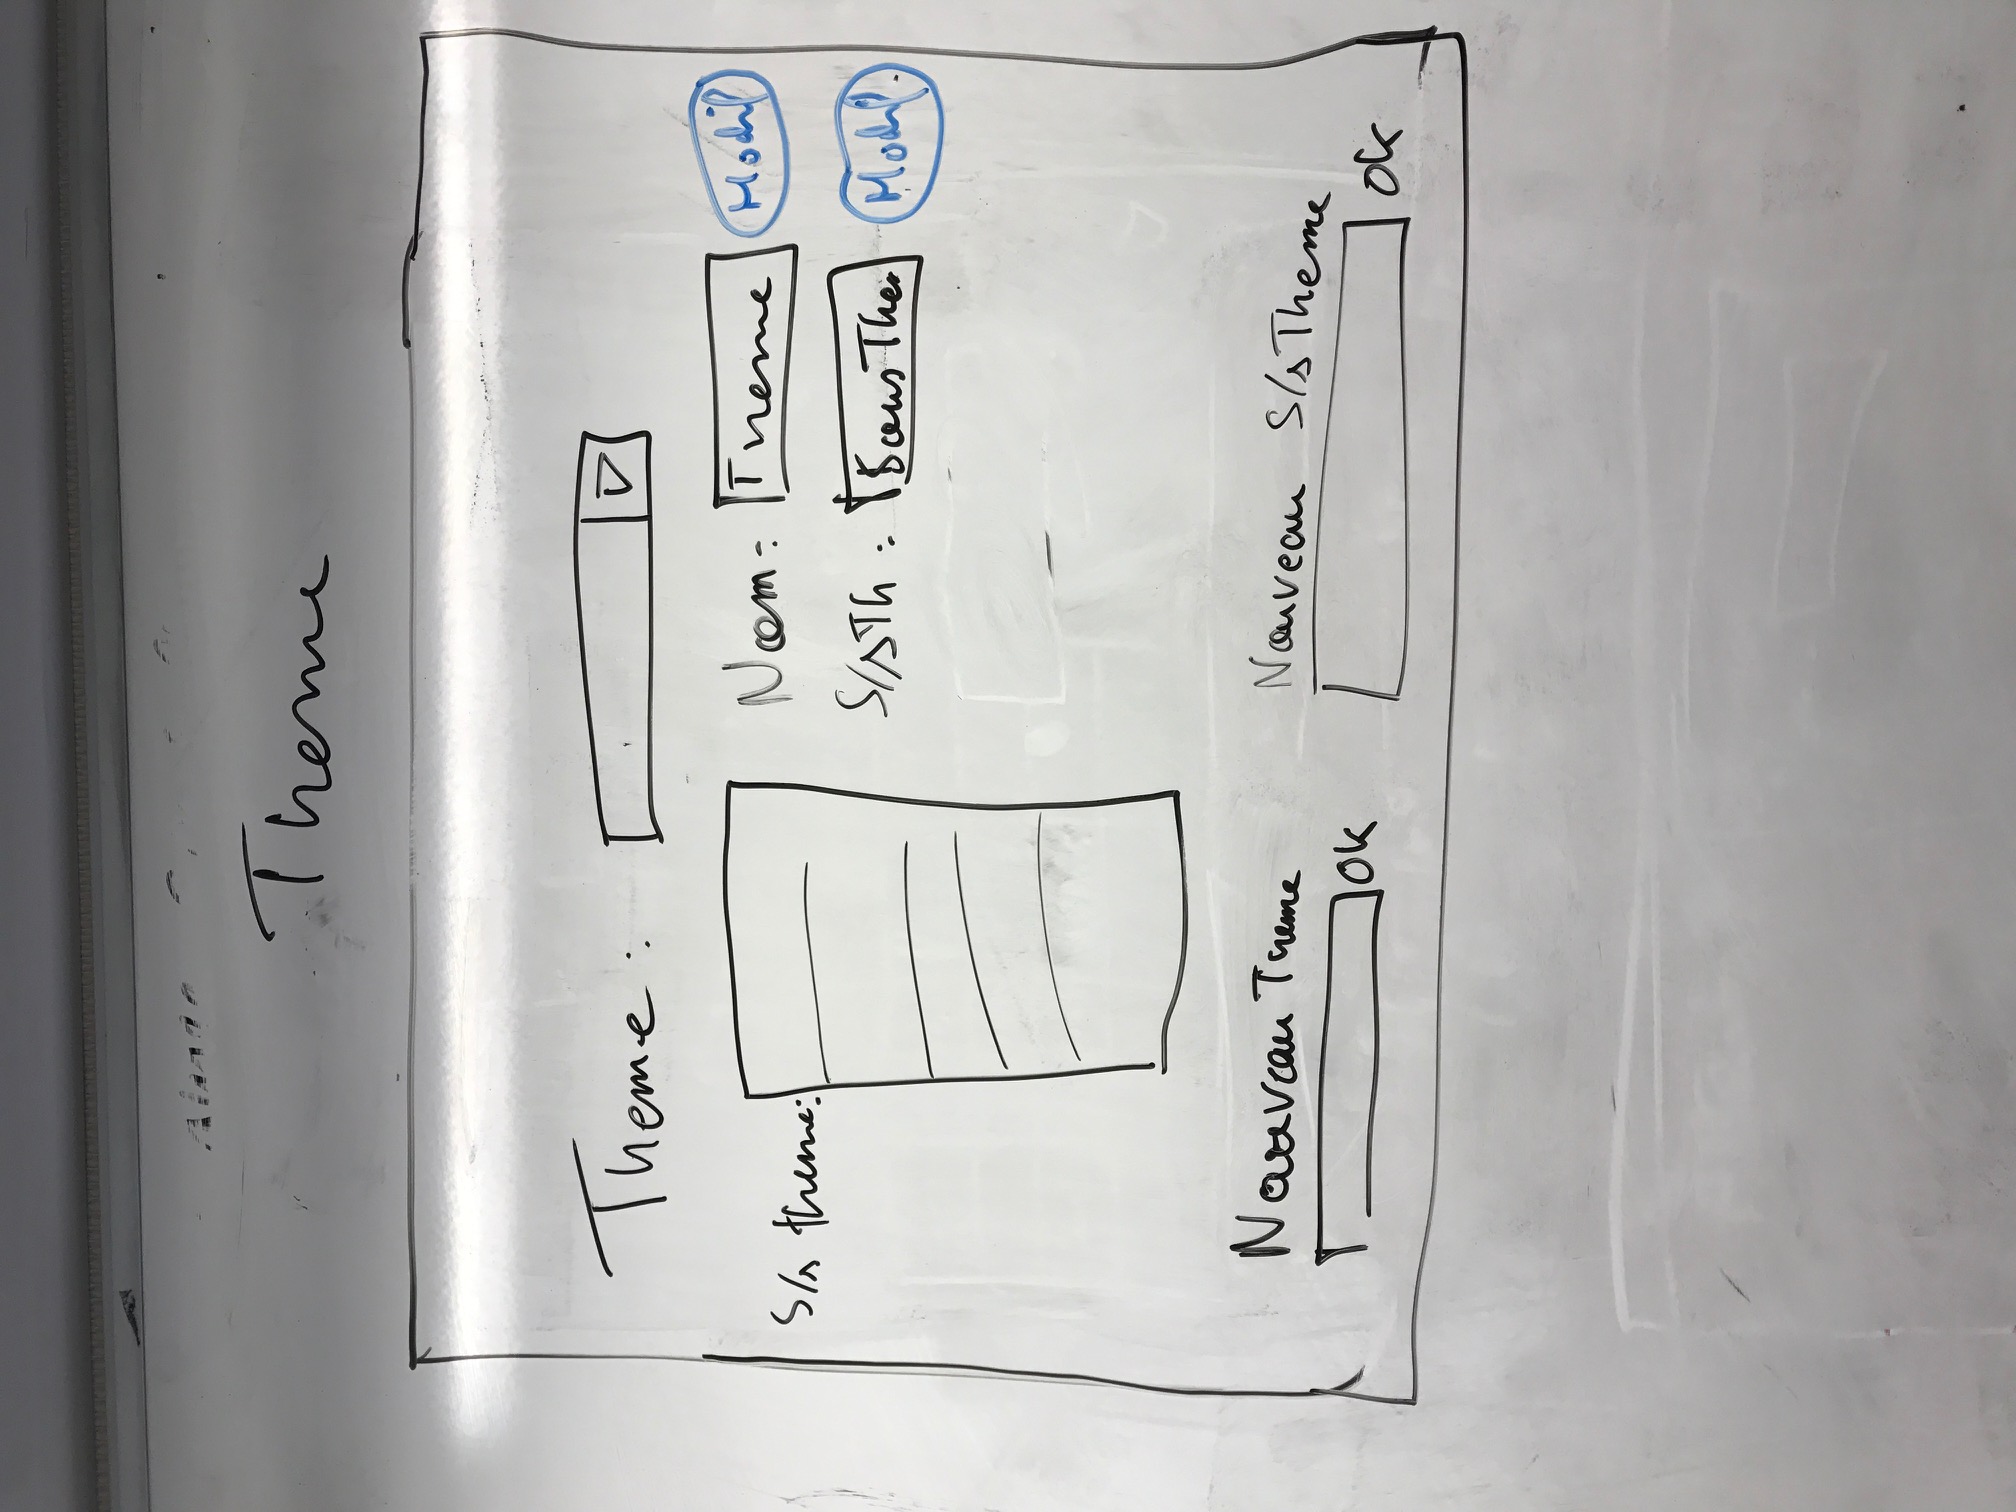 Theme
Theme :
S/s theme:
Nom: Theme Modif
S/sTh : Sous The Modif.
Nouveau Theme
OK
Nouveau S/s Theme
OK